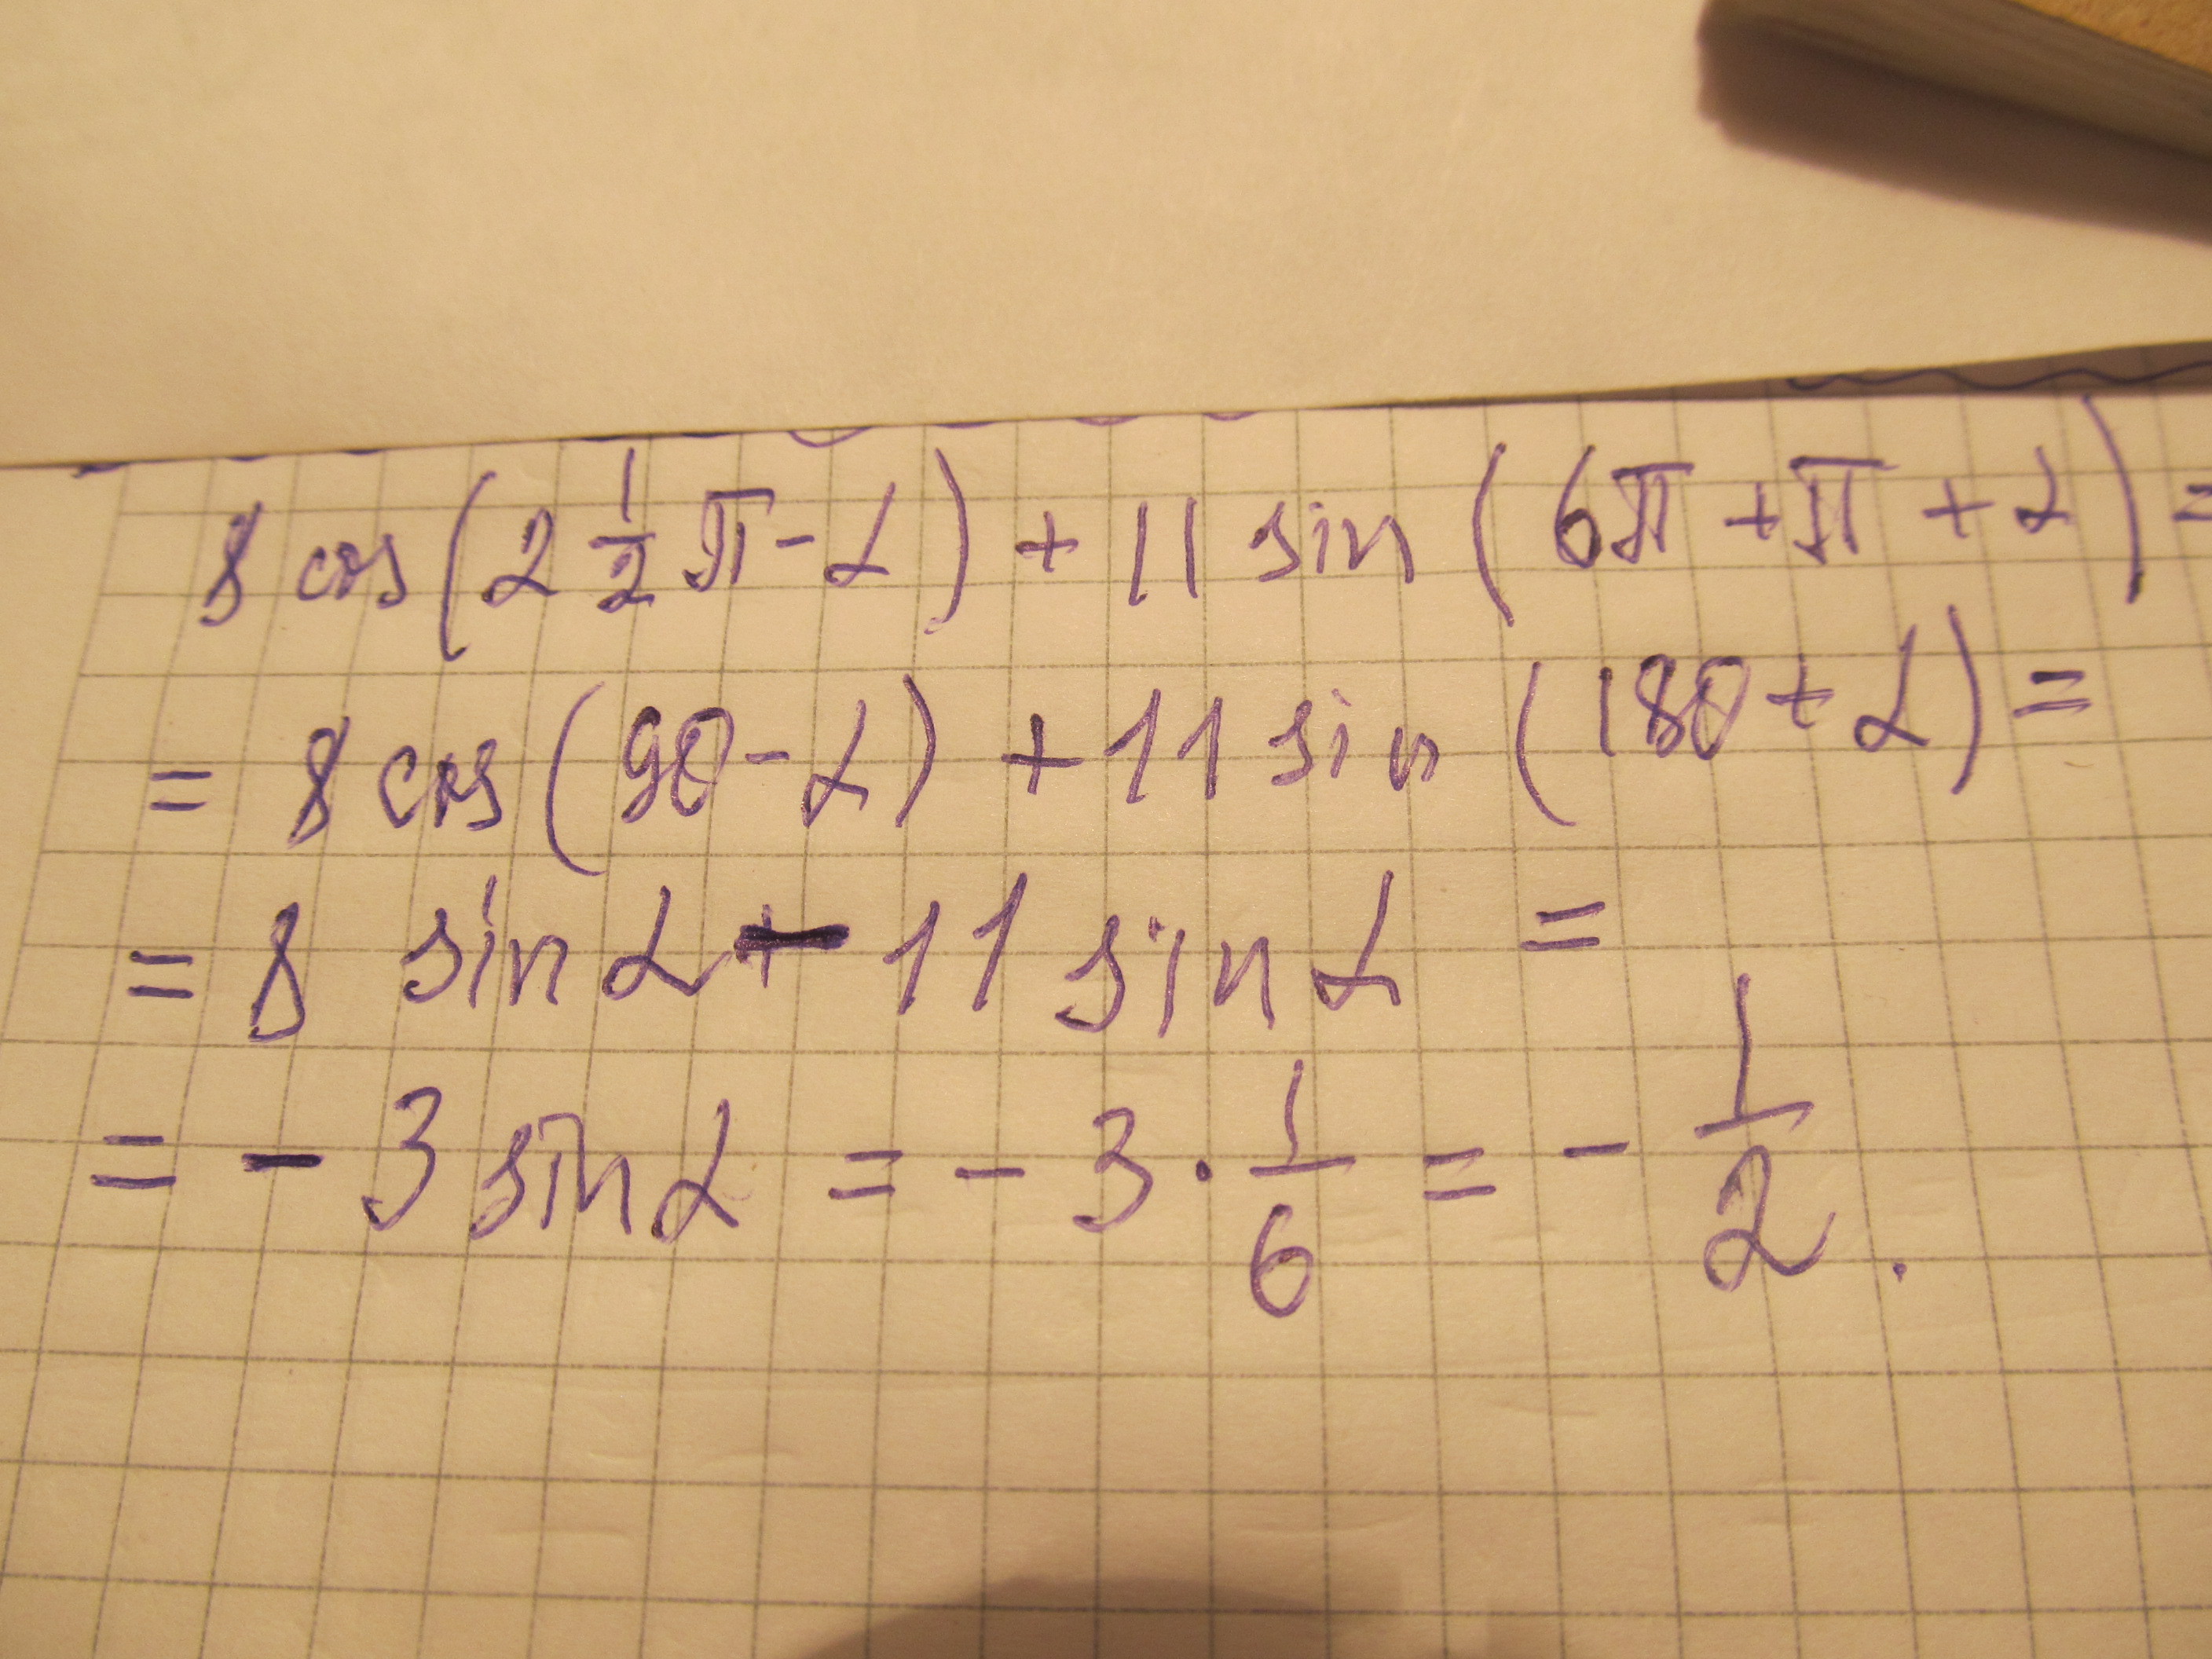 8 cos(2 1/2 π - α) + 11 sin (6π + π + α) =
= 8 cos(90 - α) + 11 sin (180 + α) =
= 8 sin α - 11 sin α =
= - 3 sin α = - 3 · 1/6 = - 1/2 .